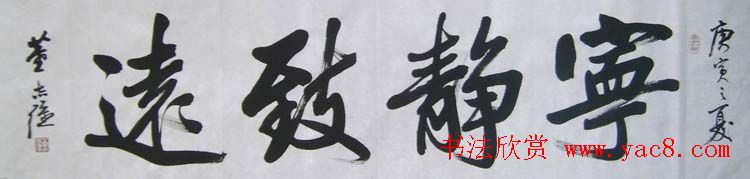 庚寅之夏
寧静致遠
董志
书法欣赏 www.yac8.com